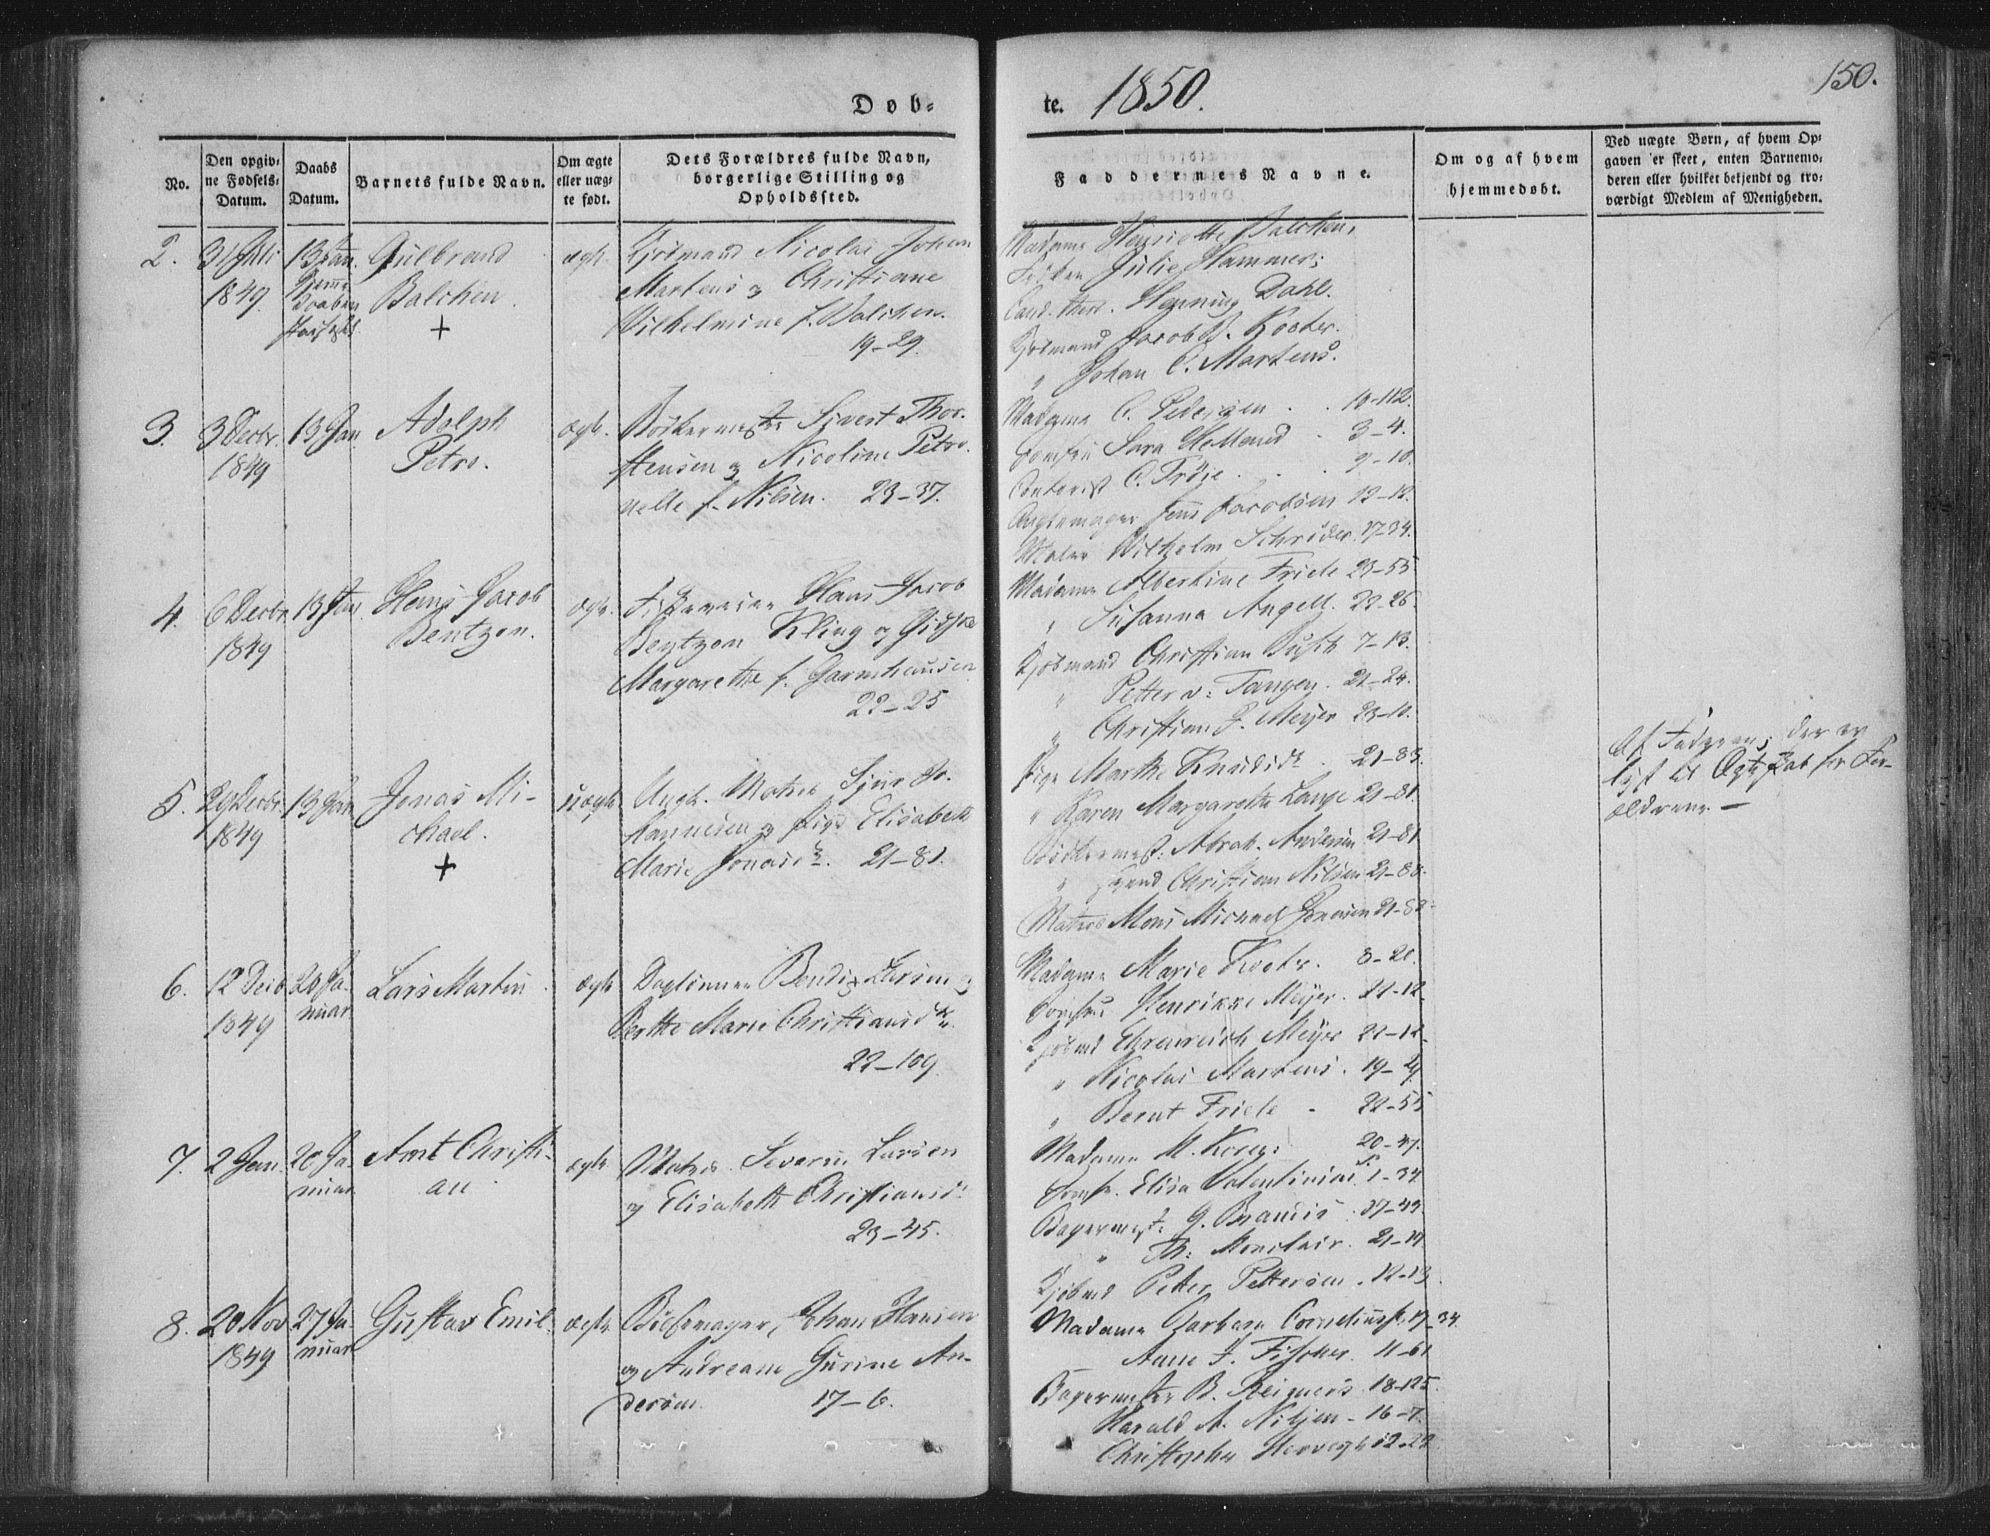 Døb-
te. 1850.
150.
No.
Den opgiv-
ne Fødsels-
Datum.
Daabs
Datum.
Barnets fulde Navn.
Om ægte
eller uæg-
te født.
Dets Forældres fulde Navn,
borgerlige Stilling og
Opholdssted.
Faddernes Navne.
Om og af hvem
hjemmedøbt.
Ved uægte Børn, af hvem Op-
gaven er skeet, enten Barnemo-
deren eller hvilket bekjendt og tro-
værdigt Medlem af Menigheden.
2.
31 Juli
1849.
13 Jan.
Hjemme
Daaben
Gulbrand
Balchen.
+
ægte
Kjøbmand Nicolai Johan
Martens og Christiane
Vilhelmine f. Balchen.
19-29.
Madame Henriette Balchen,
Frøken Julie Hammer;
Cand. theol. Henning Dahl.
Kjøbmand Jacob Kooter.
" Johan C. Martens.
3.
3 Decbr.
1849
13 Jan
Adolph
Petro.
ægte.
Bødkermester Sjvert Thor-
stensen og Nicoline Petro-
nelle f. Nilsen. 23-37.
Madame C. Pedersen . . 10-112.
Jomfru Sara Holland . 3-4.
Contorist C. Frøje . . . 9-10.
Jens Jacobsen 13-18.
Maler Vilhelm Schrøder. 17-34.
4.
6 Decbr
1849
13 Jan.
Hans Jacob
Bentzon.
ægte.
Hans Jacob
Bentzon Kling og Gidske
Margarethe f. Garmhausen
22-25
Madame Albertine Friele 23-55
" Susanna Angell. 22-26.
Kjøbmand Christian Busch 7-13.
" Petter v: Tangen. 21-24.
" Christian J. Meyer 23-10.
5.
29 Decbr.
1849
13 Jan
Jonas Mi-
chael.
+
uægte
Ungk. Matros Sjur Jo-
hannesen og Pige Elisabeth
Marie Jonasd. 21-81.
Pige Marthe Knudsd. . 21-83.
" Karen Margarethe Lange 21-81.
Bødkermest: Abrah. Andersen 21-81
" Svend Christian Nilsen 21-83.
Matros Mons Michael Jonesen 21-82.
Af Faderen; der er
lyst til Ægteskab for For-
ældrene. —
6.
12 Decb
1849
20 Ja-
nuar
Lars Martin
ægte
Daglønner Bendix Larsen og
Berthe Marie Christiansd.
22-109
Madame Marie Kooter. 8-20.
Jomfru Henrikke Meyer. 22-12.
Kjøbmd Ehrenreich Meyer 22-12.
" Nicolai Martens. 19-29.
" Bernt Friele - 22-55
7.
2 Jan.
20 Ja-
nuar
Arnt Christi-
an
ægte
Matros Severin Larsen
og Elisabeth Christiansd.
23-45.
Madame M. Koren 20-47.
Jomfr. Elisa Valentinsen 1-34
Bagermest: G. Brandis. 17-43.
" Th: Monclair. 21-11
Kjøbmd Peter Pettersen. 12-13.
8.
20 Nov
1849
27 Ja-
nuar
Gustav Emil
ægte
Bøssemager Johan Hansen
og Andreane Gurine An-
dersen. 17-6.
Madame Barbara Corneliussen 17-34.
Anne J. Fischer. 11-61
Bagermester B. Reigners. 18-125.
Harald A. Nilsen - 16-7.
Christopher Herwegh 12-22